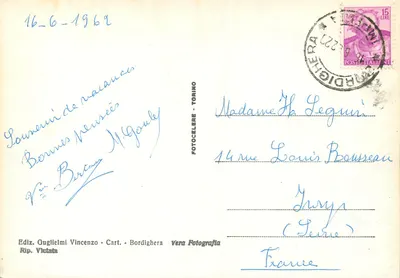 16-6-1962
Souvenir de vacances
Bonnes pensées
Madame H Seguin
14 rue Louis Rousseau
Ivry
(Seine)
France
15
BORDIGHERA
FOTOCELERE - TORINO
Ediz. Guglielmi Vincenzo - Cart. - Bordighera
Vera Fotografia
Rip. Vietata